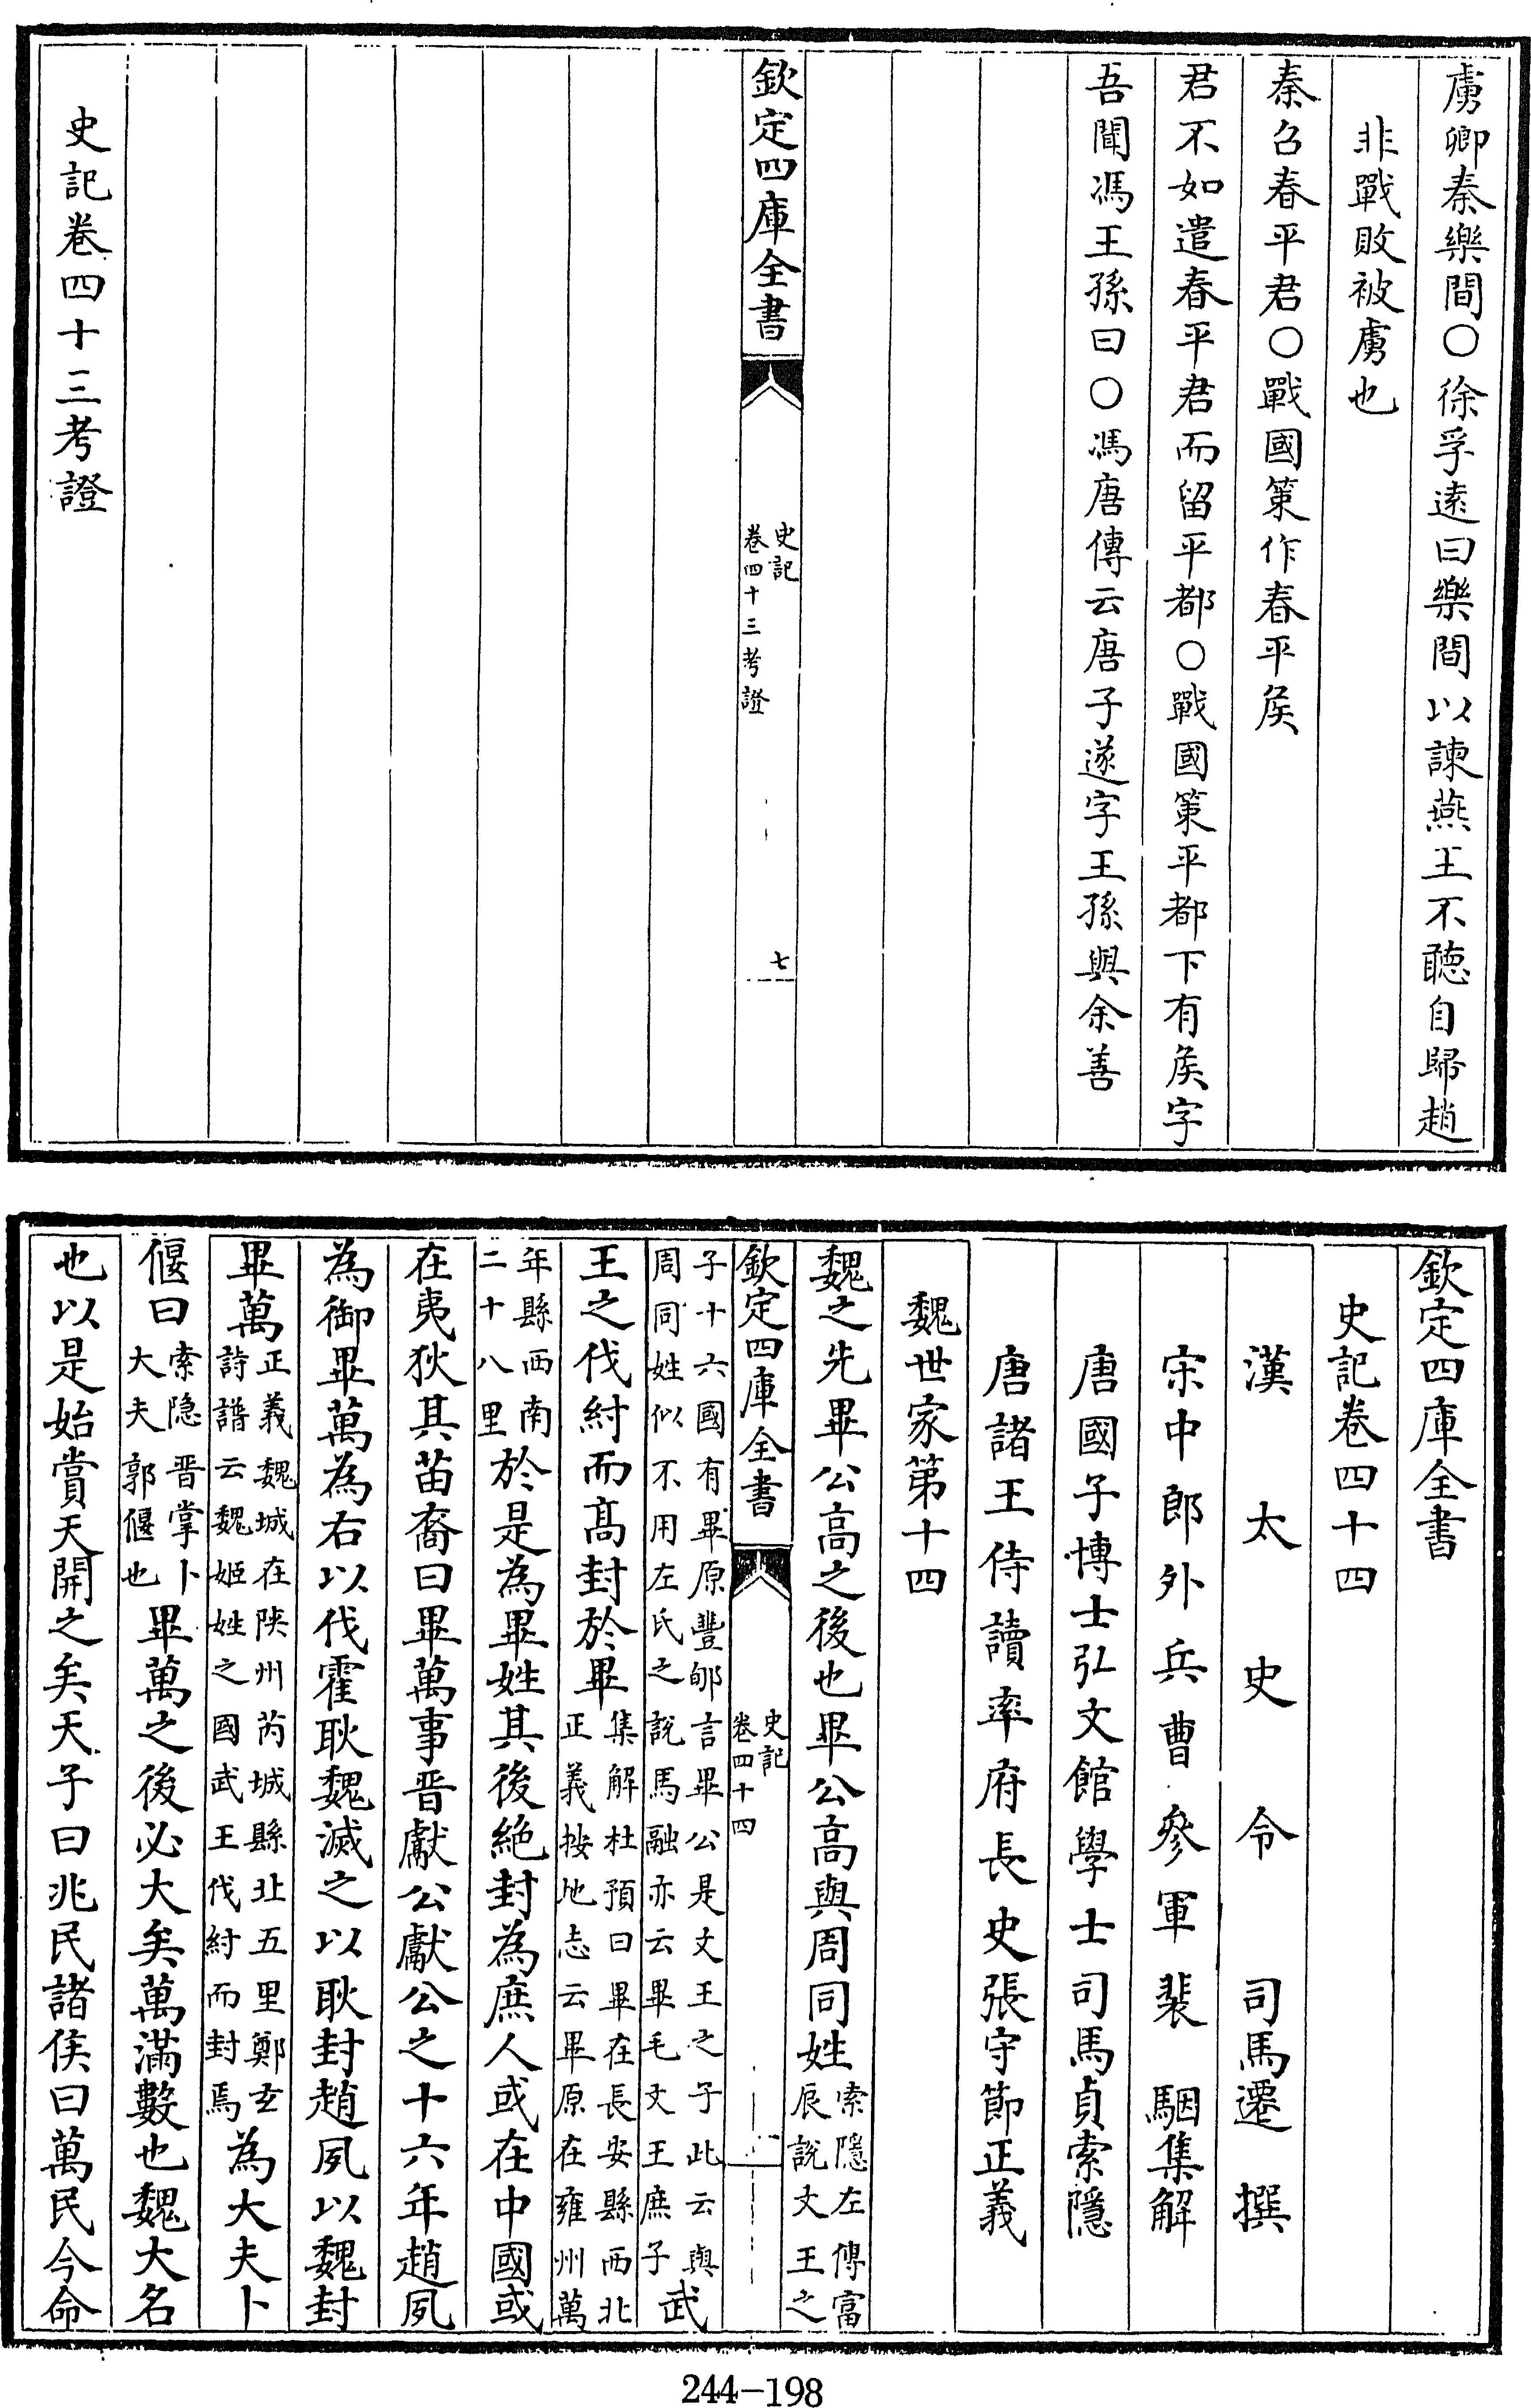 虜卿秦樂間○徐孚遠曰樂間以諫燕王不聽自歸趙
非戰敗被虜也
秦召春平君○戰國策作春平侯
君不如遣春平君而留平都○戰國策平都下有侯字
吾聞馮王孫曰○馮唐傳云唐子遂字王孫與余善
欽定四庫全書
史記
卷四十三考證
七
史記卷四十三考證
欽定四庫全書
史記卷四十四
漢太史令司馬遷撰
宋中郎外兵曹參軍裴駰集解
唐國子博士弘文館學士司馬貞索隱
唐諸王侍讀率府長史張守節正義
魏世家第十四
魏之先畢公高之後也畢公高與周同姓
索隱左傳富
辰說文王之
欽定四庫全書
史記
卷四十四
一
子十六國有畢原豐郇言畢公是文王之子此云與
周同姓似不用左氏之說馬融亦云畢毛文王庶子
武
王之伐紂而高封於畢
集解杜預曰畢在長安縣西北
正義按地志云畢原在雍州萬
年縣西南
二十八里
於是為畢姓其後絕封為庶人或在中國或
在夷狄其苗裔曰畢萬事晉獻公獻公之十六年趙夙
為御畢萬為右以伐霍耿魏滅之以耿封趙夙以魏封
畢萬
正義魏城在陝州芮城縣北五里鄭玄
詩譜云魏姬姓之國武王伐紂而封焉
為大夫卜
偃曰
索隱晉掌卜
大夫郭偃也
畢萬之後必大矣萬滿數也魏大名
也以是始賞天開之矣天子曰兆民諸侯曰萬民今命
244-198